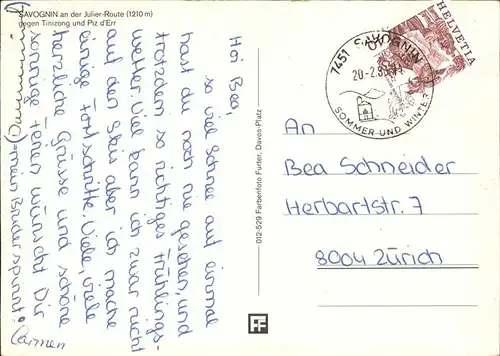 SAVOGNIN an der Julier-Route (1210 m)
gegen Tinizong und Piz d'Err
Hoi Bea,
so viel Schnee auf einmal
hast du noch nie gesehen, und
trotzdem so richtiges Frühlings-
wetter. Viel kann ich zwar nicht
auf den Skis aber ich mache
einige Fortschritte. Viele, viele
herzliche Grüsse und schöne
sonnige Ferien wünscht Dir
Carmen
(=mein Bruder spinnt!)
012-529 Farbenfoto Furter, Davos-Platz
FF
7451 SAVOGNIN
20-2.8
SOMMER UND WINTER
HELVETIA
An
Bea Schneider
Herbartstr. 7
8004 Zürich